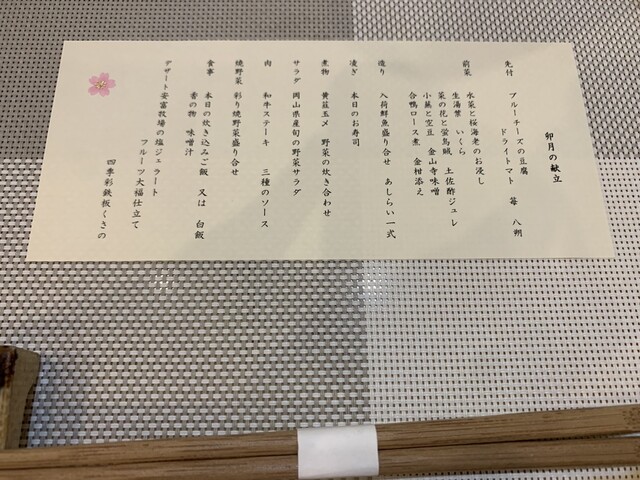 卯月の献立
先付 ブルーチーズの豆腐
ドライトマト 苺 八朔
前菜 水菜と桜海老のお浸し
生湯葉 いくら
菜の花と蛍烏賊 土佐酢ジュレ
小蕪と空豆 金山寺味噌
合鴨ロース煮 金柑添え
造り 入荷鮮魚盛り合せ あしらい一式
凌ぎ 本日のお寿司
煮物 黄韮玉〆 野菜の炊き合わせ
サラダ 岡山県産旬の野菜サラダ
肉 和牛ステーキ 三種のソース
焼野菜 彩り焼野菜盛り合せ
食事 本日の炊き込みご飯 又は 白飯
香の物 味噌汁
デザート 安富牧場の塩ジェラート
フルーツ大福仕立て
四季彩鉄板くさの